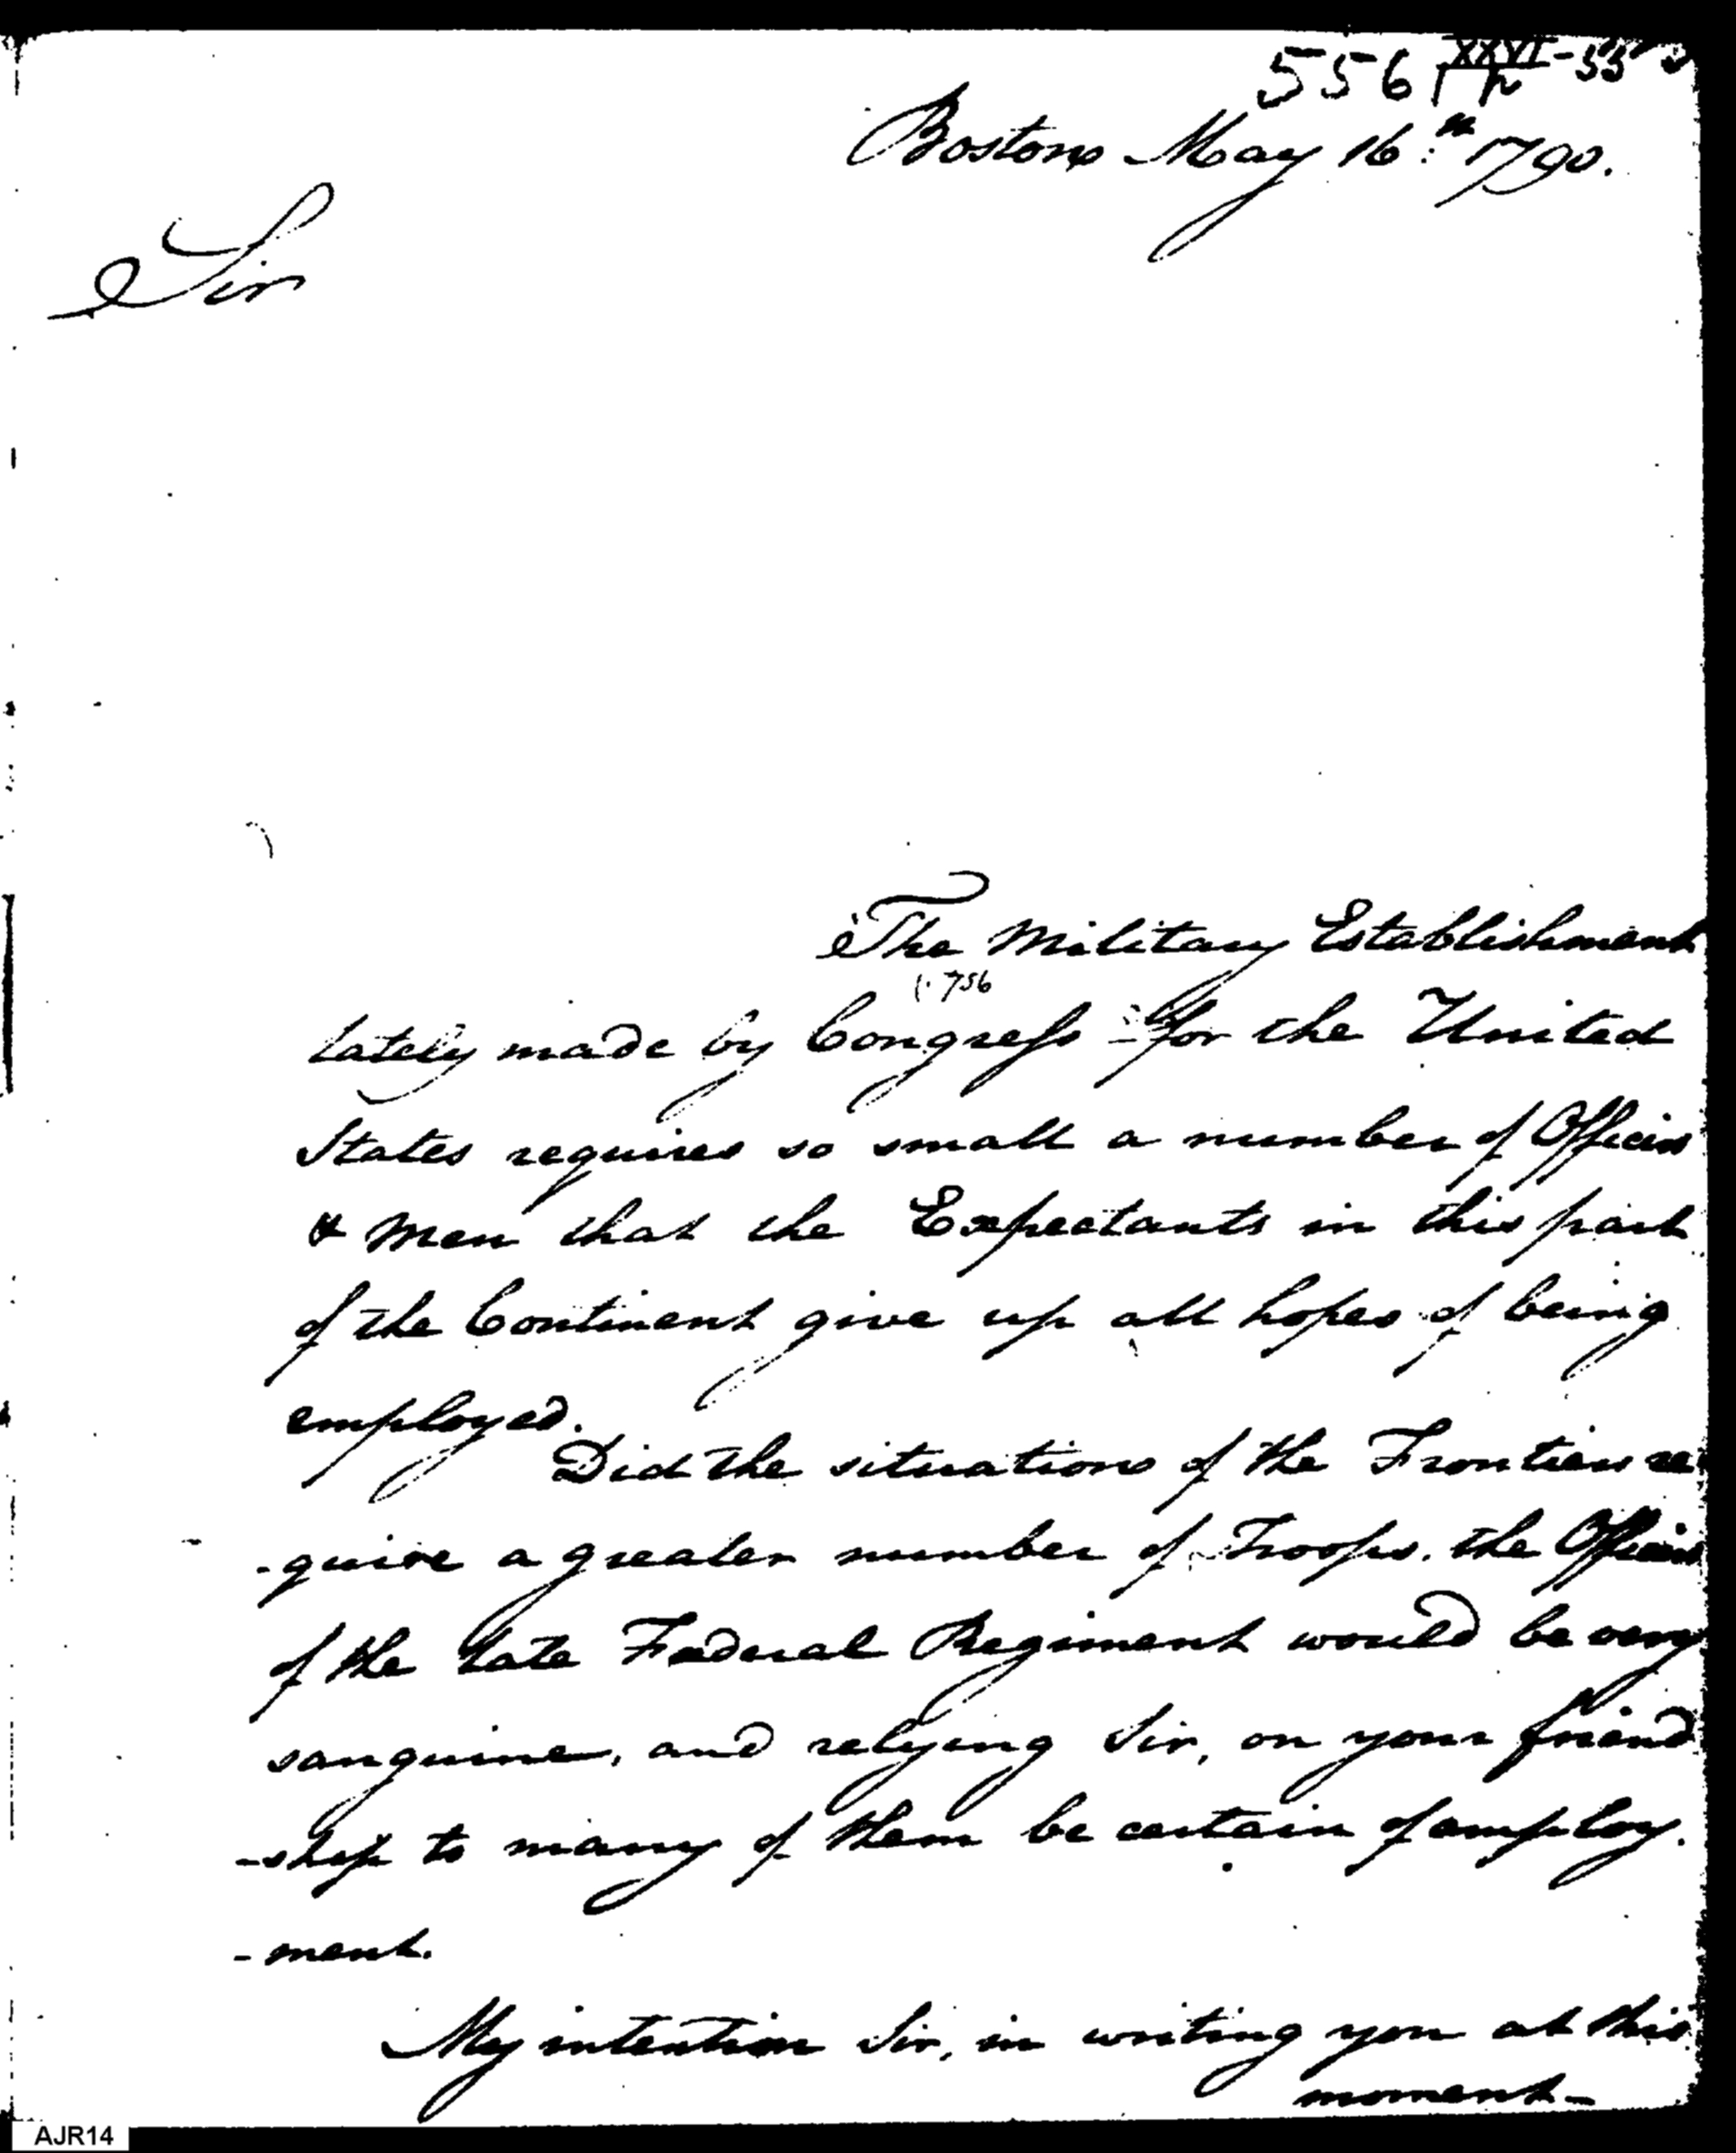 556
XXVI-55
Boston May 16:th 1790.
Sir
The Military Establishment
p. 756
lately made by Congress for the United
States requires so small a number of Officers
& Men that the Expectants in this part
of the Continent give up all hopes of being
employed.
Did the situations of the Frontiers re
-quire a greater number of Troops. the Officers
of the late Federal Regiment would be very
sanguine, and relying Sir, on your friend
-ship to many of them be certain of employ.
-ment.
My intention Sir, in writing you at this
moment-
AJR14